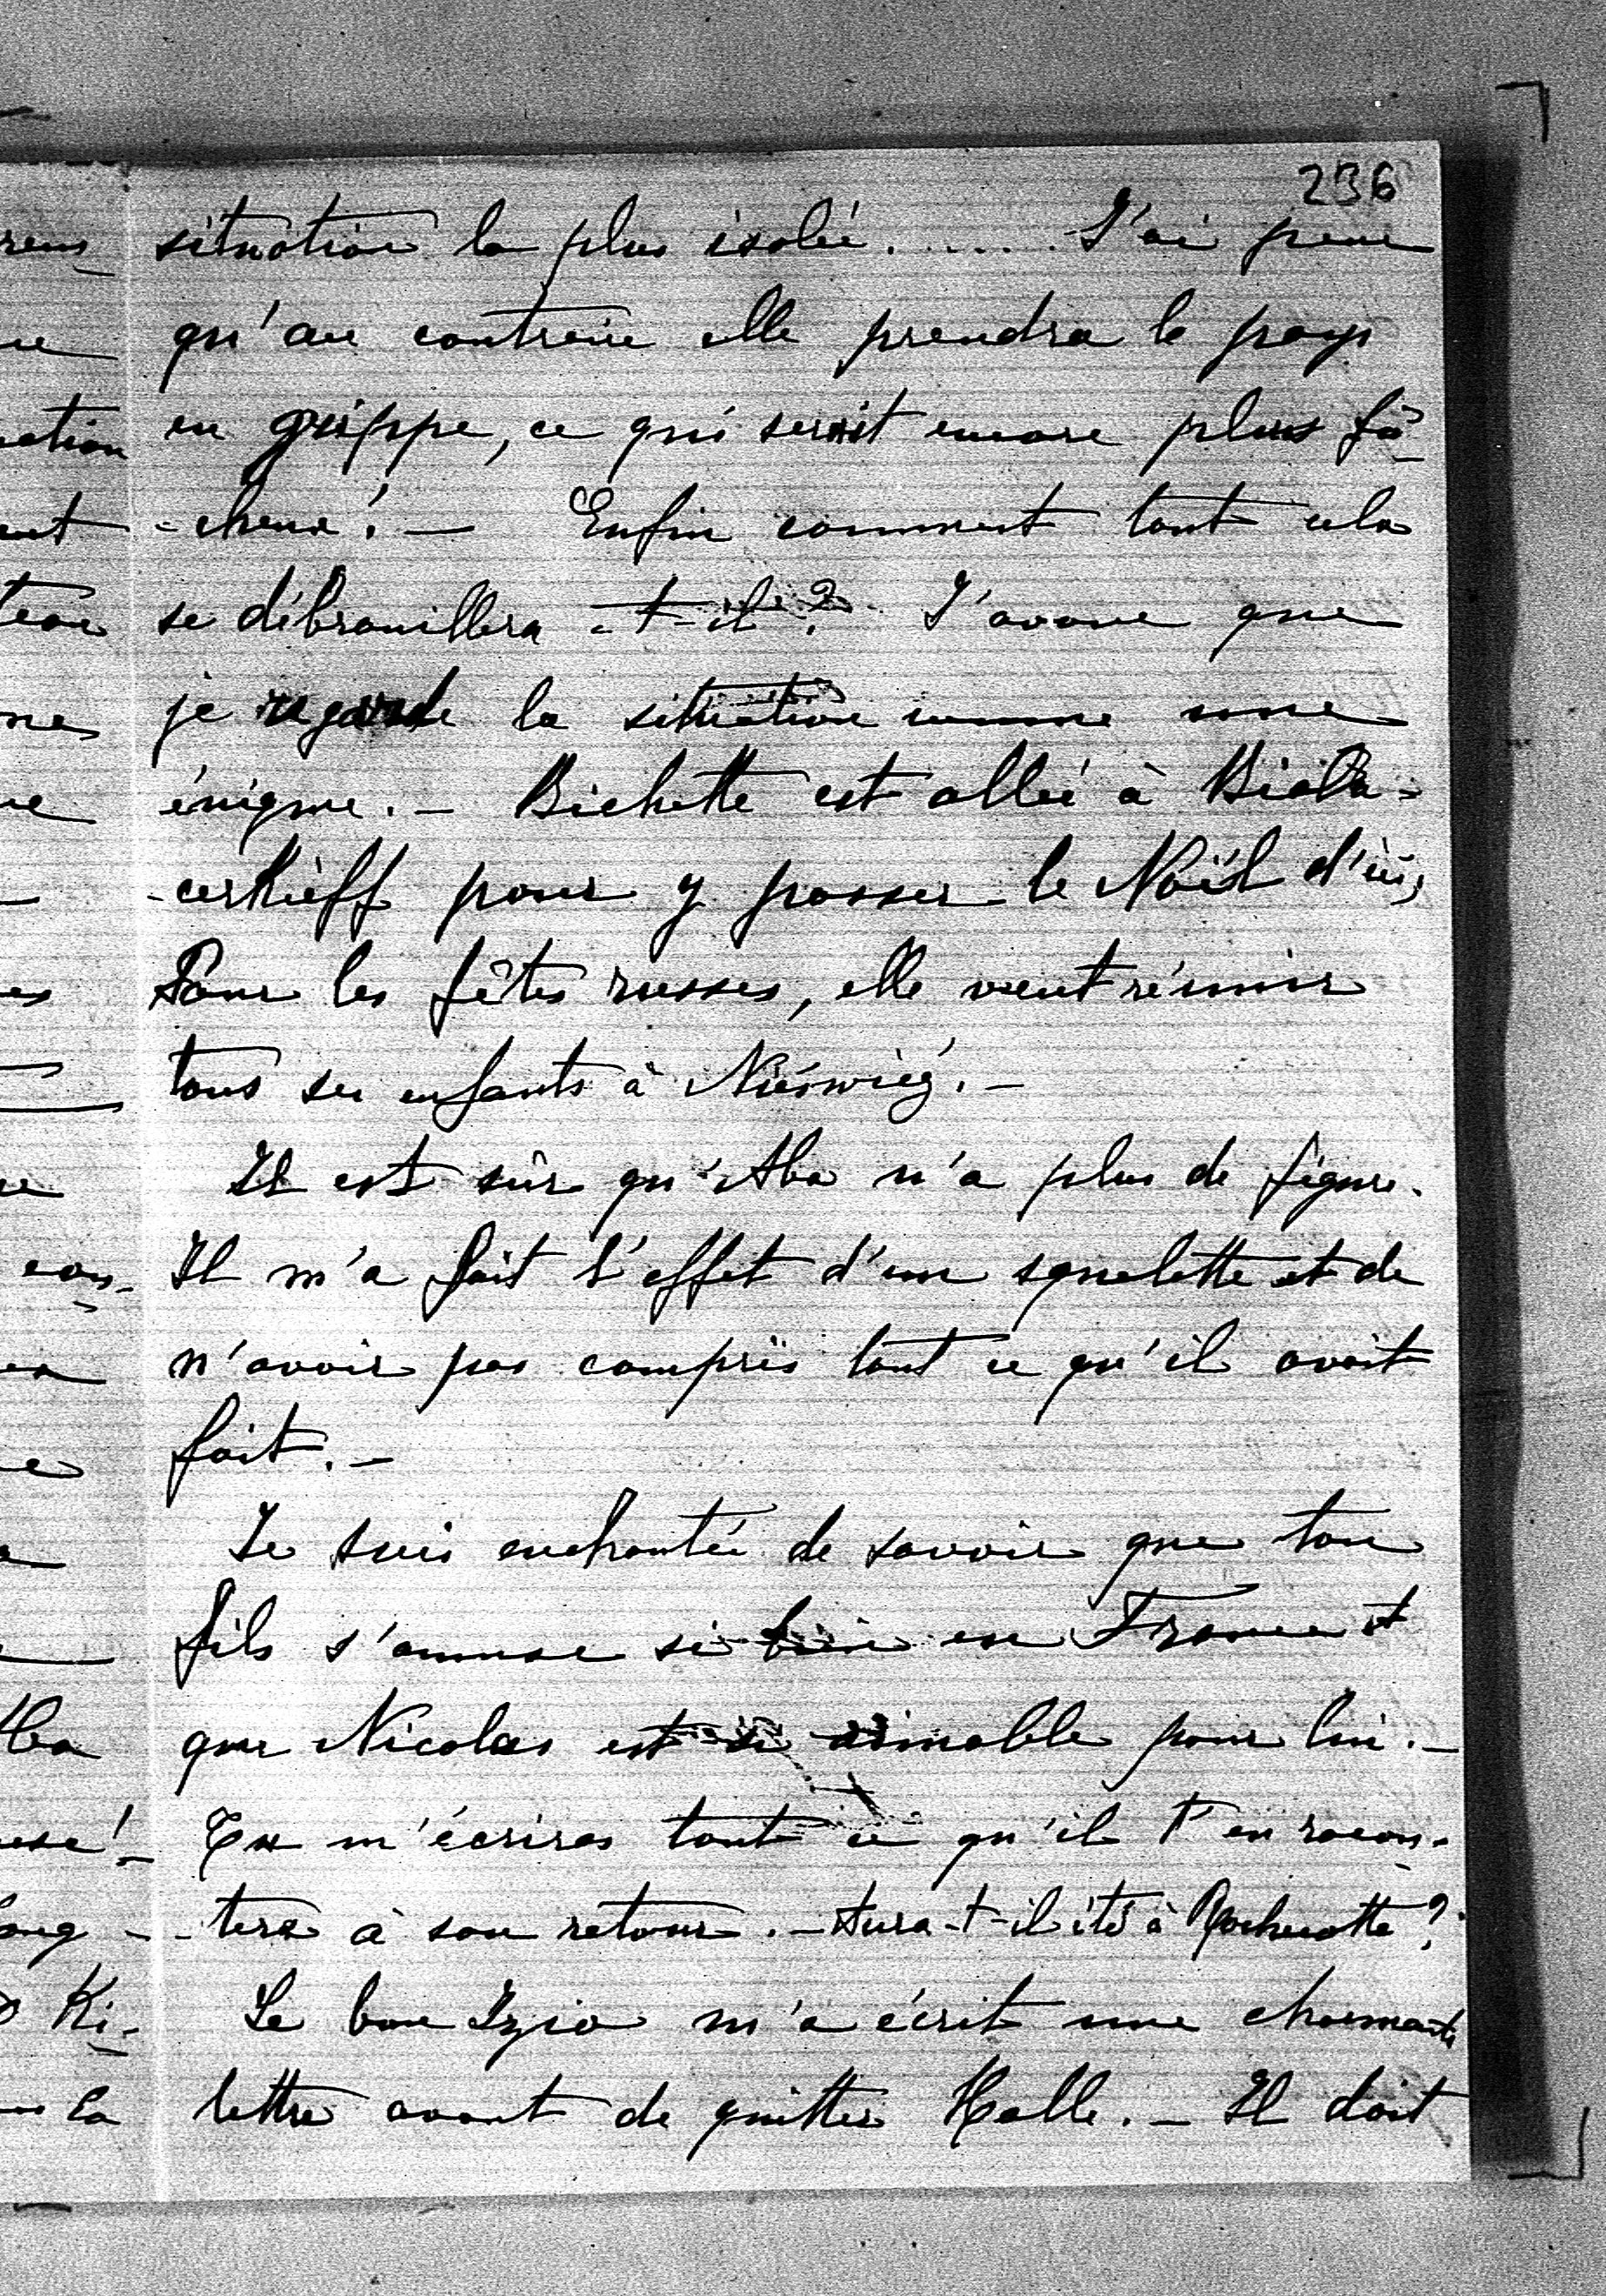 236
situation la plus isolée ...... J'ai peur
qu'au contraire elle prendra le pays
en grippe, ce qui serait encore plus fâ-
-cheux! — Enfin comment tout cela
se débrouillera-t-il? J'avoue que
je regarde la situation comme une
énigme. — Bichette est allée à Biala-
-cerkieff pour y passer le Noël d'ici,
Pour les fêtes russes, elle veut réunir
tous ses enfants à Nieświéź. —
Il est sûr qu'Aba n'a plus de figure.
Il m'a fait l'effet d'un squelette et de
n'avoir pas compris tout ce qu'il avait
fait. —
Je suis enchantée de savoir que ton
fils s'amuse si bien en France et
que Nicolas est si aimable pour lui. —
Tu m'écriras tout ce qu'il t'en racon-
-tera à son retour. — Aura-t-il été à Rochecotte?
Le bon Izio m'a écrit une charmante
lettre avant de quitter Halle. — Il doit